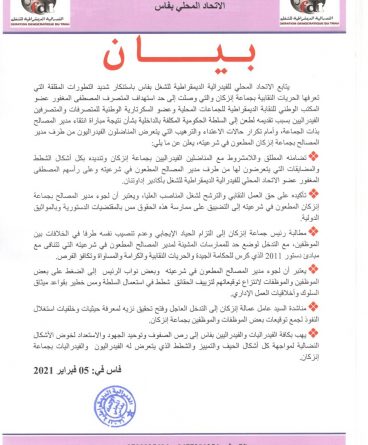 الاتحاد المحلي بفاس
الفيدرالية الديمقراطية للشغل
بيــان
يتابع الاتحاد المحلي للفيدرالية الديمقراطية للشغل بفاس باستنكار شديد التطورات المقلقة التي
تعرفها الحريات النقابية بجماعة إنزكان والتي وصلت إلى حد استهداف المتصرف المصطفى المغفور عضو
المكتب الوطني للنقابة الديمقراطية للجماعات المحلية وعضو السكرتارية الوطنية للمتصرفات والمتصرفين
الفيدراليين بسبب تقديمه لطعن إلى السلطة الحكومية المكلفة بالداخلية بشأن نتيجة مباراة انتقاء مدير المصالح
بذات الجماعة، وأمام تكرار حالات الاعتداء والترهيب التي يتعرض المناضلين الفيدراليون من طرف مدير
المصالح بجماعة إنزكان المطعون في شرعيته، يعلن ما يلي:
تضامنه المطلق واللامشروط مع المناضلين الفيدراليين بجماعة إنزكان وتنديده بكل أشكال الشطط
والمضايقات التي يتعرضون لها من طرف مدير المصالح المطعون في شرعيته وعلى رأسهم المصطفى
المغفور عضو الاتحاد المحلي للفيدرالية الديمقراطية للشغل بأكادير إداوتنان.
تأكيده على حق العمل النقابي والترشح لشغل المناصب العليا، ويعتبر أن لجوء مدير المصالح بجماعة
إنزكان المطعون في شرعيته إلى التضييق على ممارسة هذه الحقوق مس بالمقتضيات الدستورية وبالمواثيق
الدولية.
مطالبة رئيس جماعة إنزكان إلى التزام الحياد الإيجابي وعدم تنصيب نفسه طرفا في الخلافات بين
الموظفين، مع التدخل لوضع حد للممارسات المشينة لمدير المصالح المطعون في شرعيته التي تتنافى مع
مبادئ دستور 2011 الذي كرس للحكامة الجيدة والحريات النقابية والكرامة والمساواة وتكافؤ الفرص.
يعتبر أن لجوء مدير المصالح المطعون في شرعيته وبعض نواب الرئيس إلى الضغط على بعض
الموظفين والموظفات لانتزاع توقيعاتهم لتزييف الحقائق شطط في استعمال السلطة ومس خطير بقواعد ميثاق
السلوك وأخلاقيات العمل الإداري.
مناشدة السيد عامل عمالة إنزكان إلى التدخل العاجل وفتح تحقيق نزيه لمعرفة حيثيات وخلفيات استغلال
النفوذ لجمع توقيعات بعض الموظفات والموظفين بجماعة إنزكان.
يهيب بكافة الفيدراليات والفيدراليين بفاس إلى رص الصفوف وتوحيد الجهود والاستعداد لخوض الأشكال
النضالية لمواجهة كل أشكال الحيف والتمييز والشطط الذي يتعرض له الفيدراليون والفيدراليات بجماعة
إنزكان.
فاس في: 05 فبراير 2021